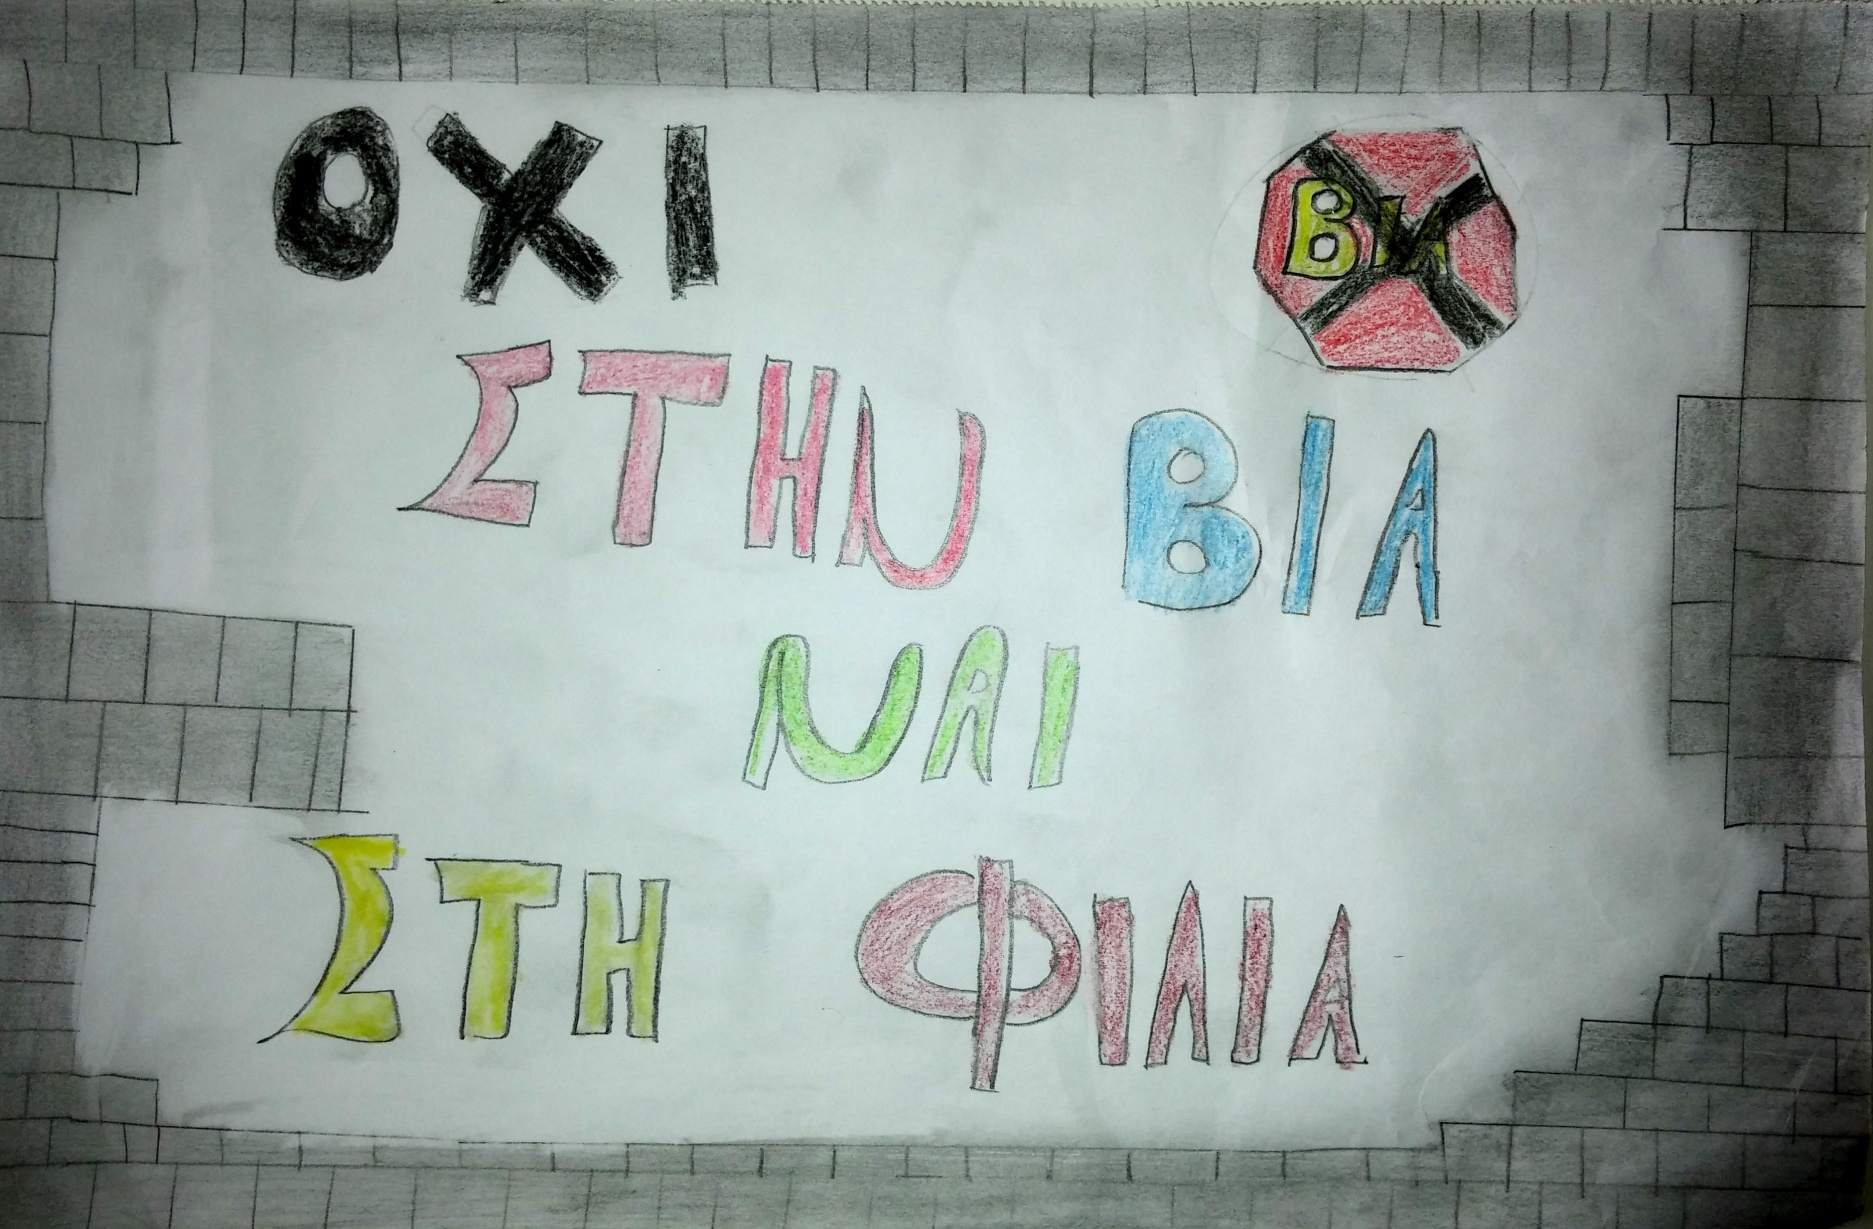 ΟΧΙ
ΒΙΑ
ΣΤΗΝ ΒΙΑ
ΝΑΙ
ΣΤΗ ΦΙΛΙΑ